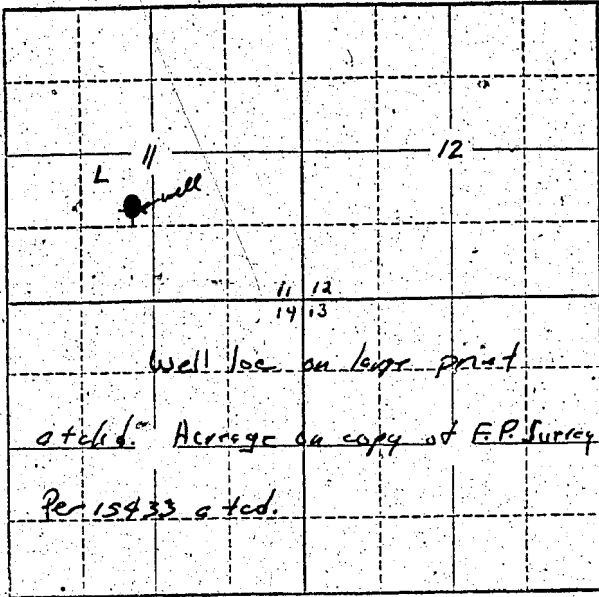 11 12
L
well
11 12
14 13
Well loc on large print
atchd. Acreage on copy of F.P. Survey
Per 15433 atcd.